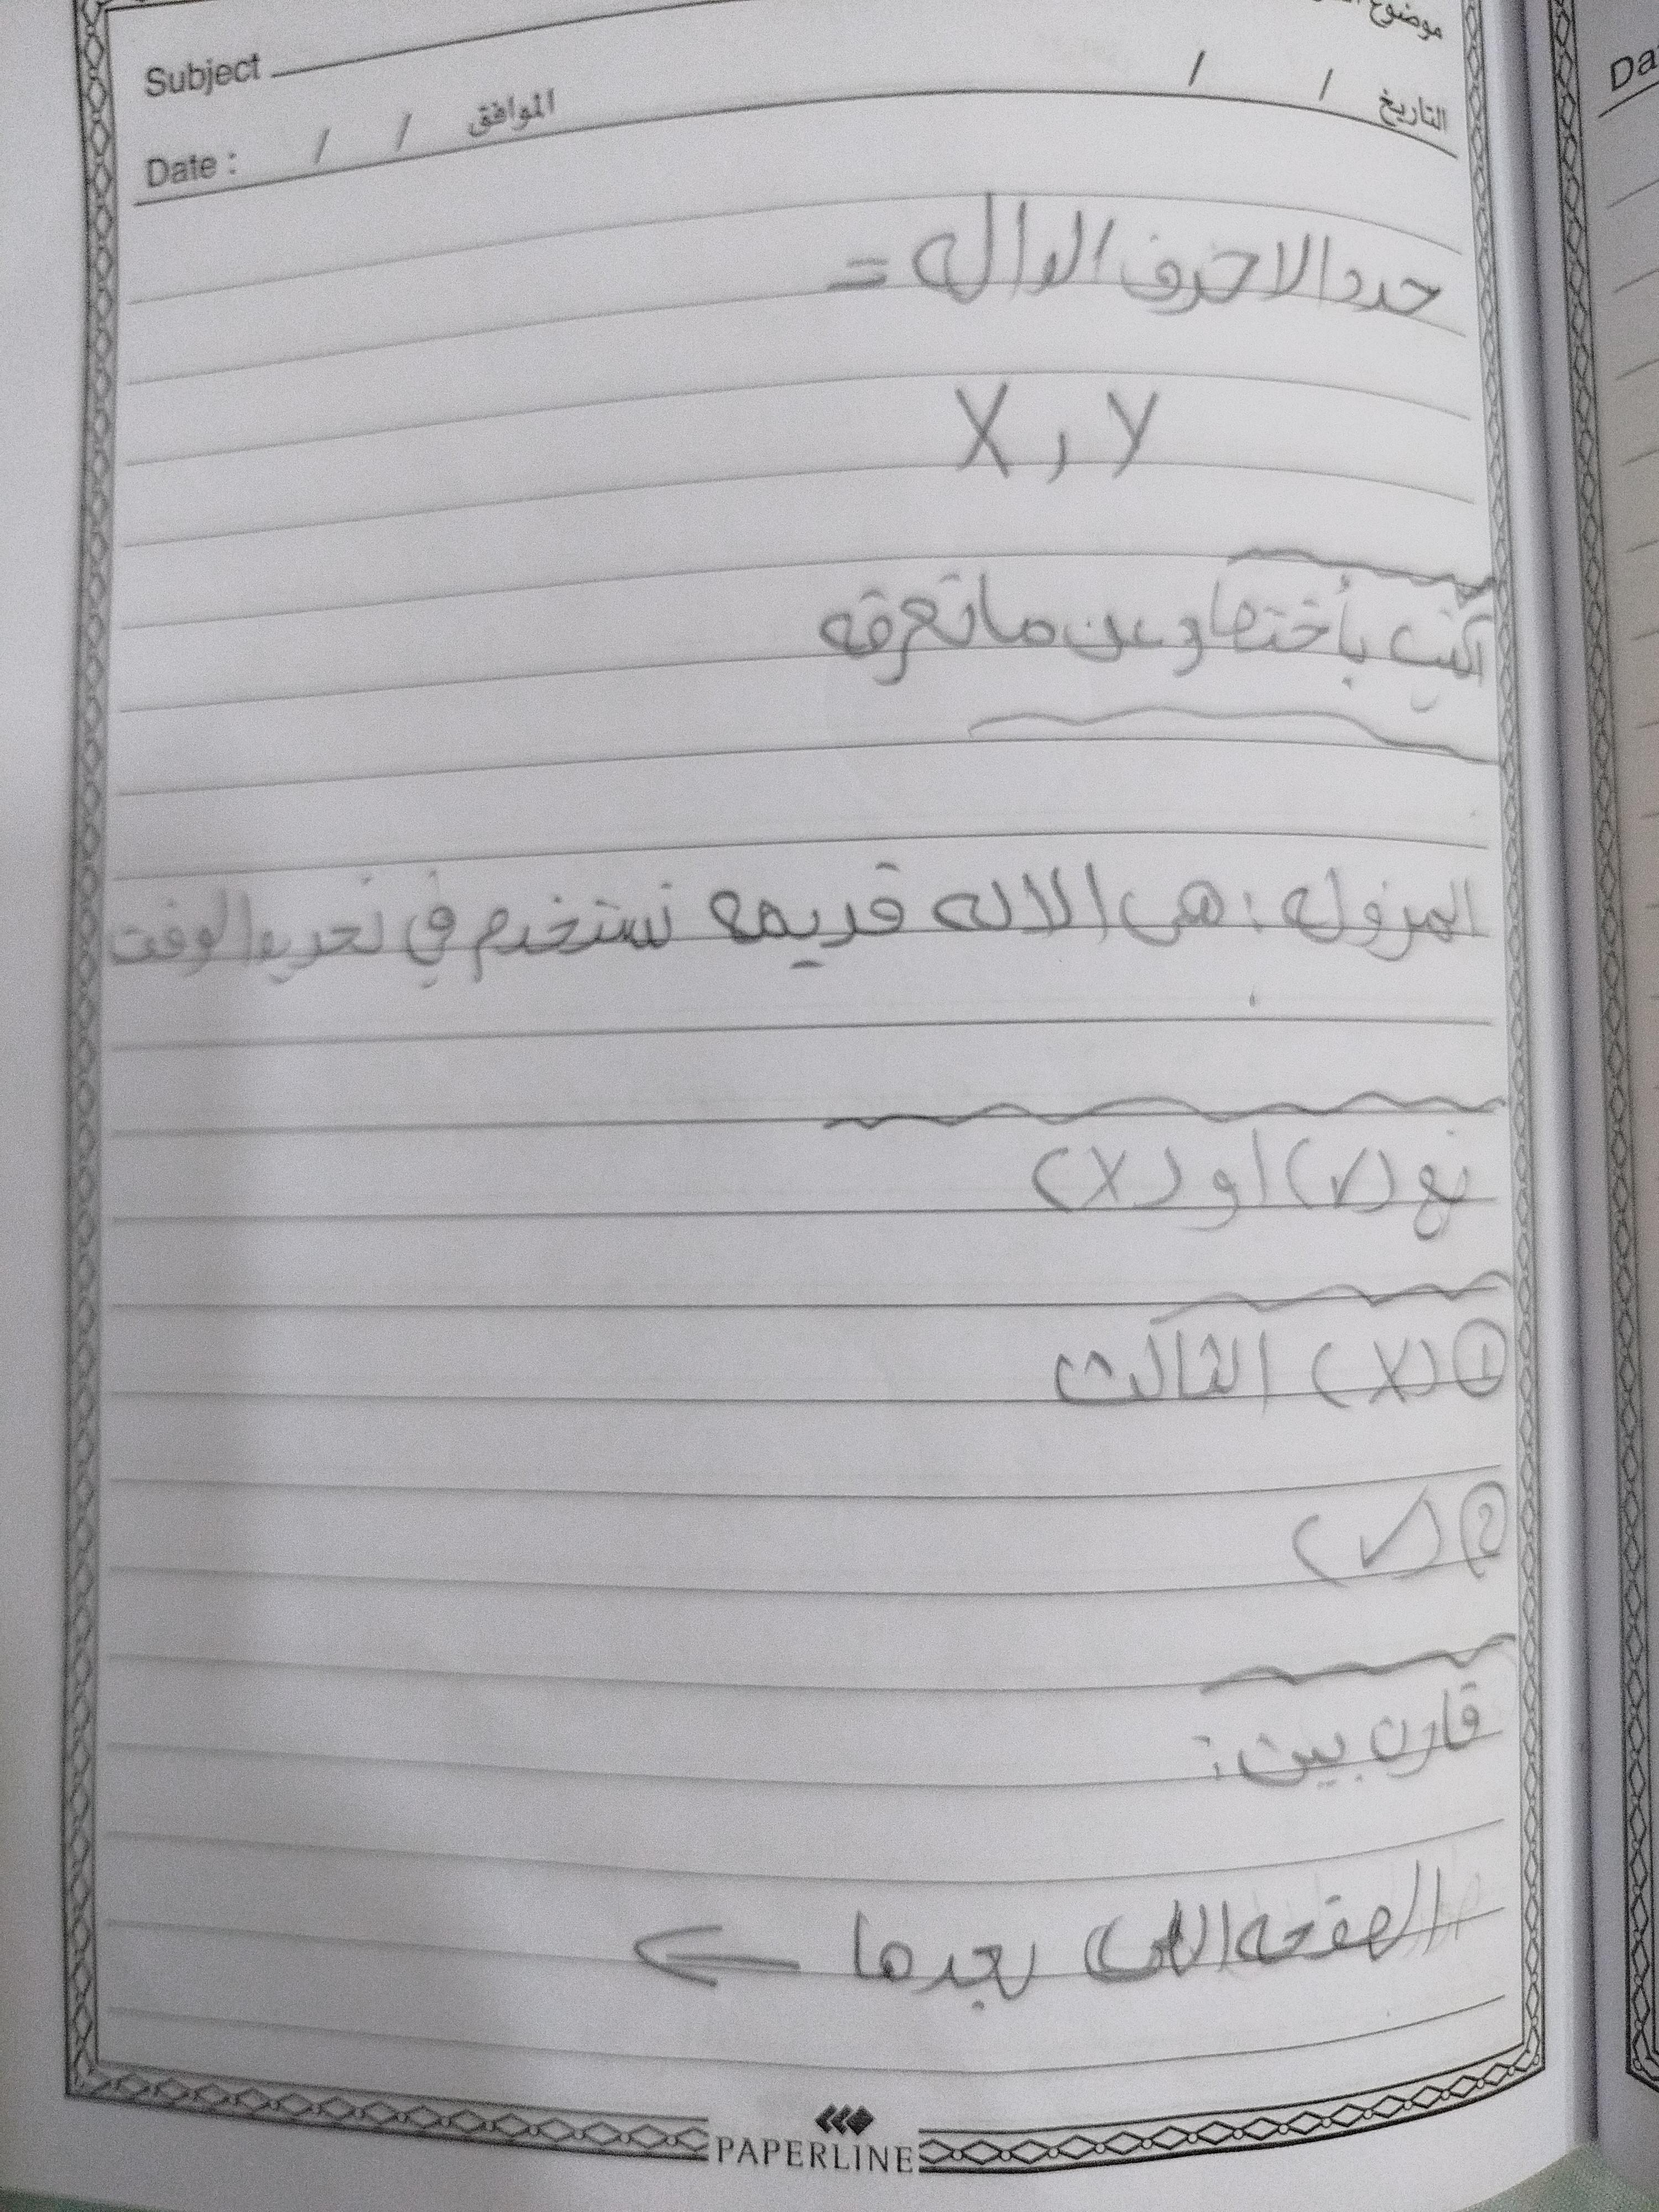 موضوع
Subject
التاريخ / /
Date : / / الموافق
Da
حدد الاحرف الداله =
X , Y
اكتب بأختصار عن ما تعرفه
المزوله : هى الاله قديمه تستخدم في تحديد الوقت
ضع (✓) او (X)
① (X) الثالث
② (✓)
قارن بين :
الصفحه اللى بعدها ←
PAPERLINE